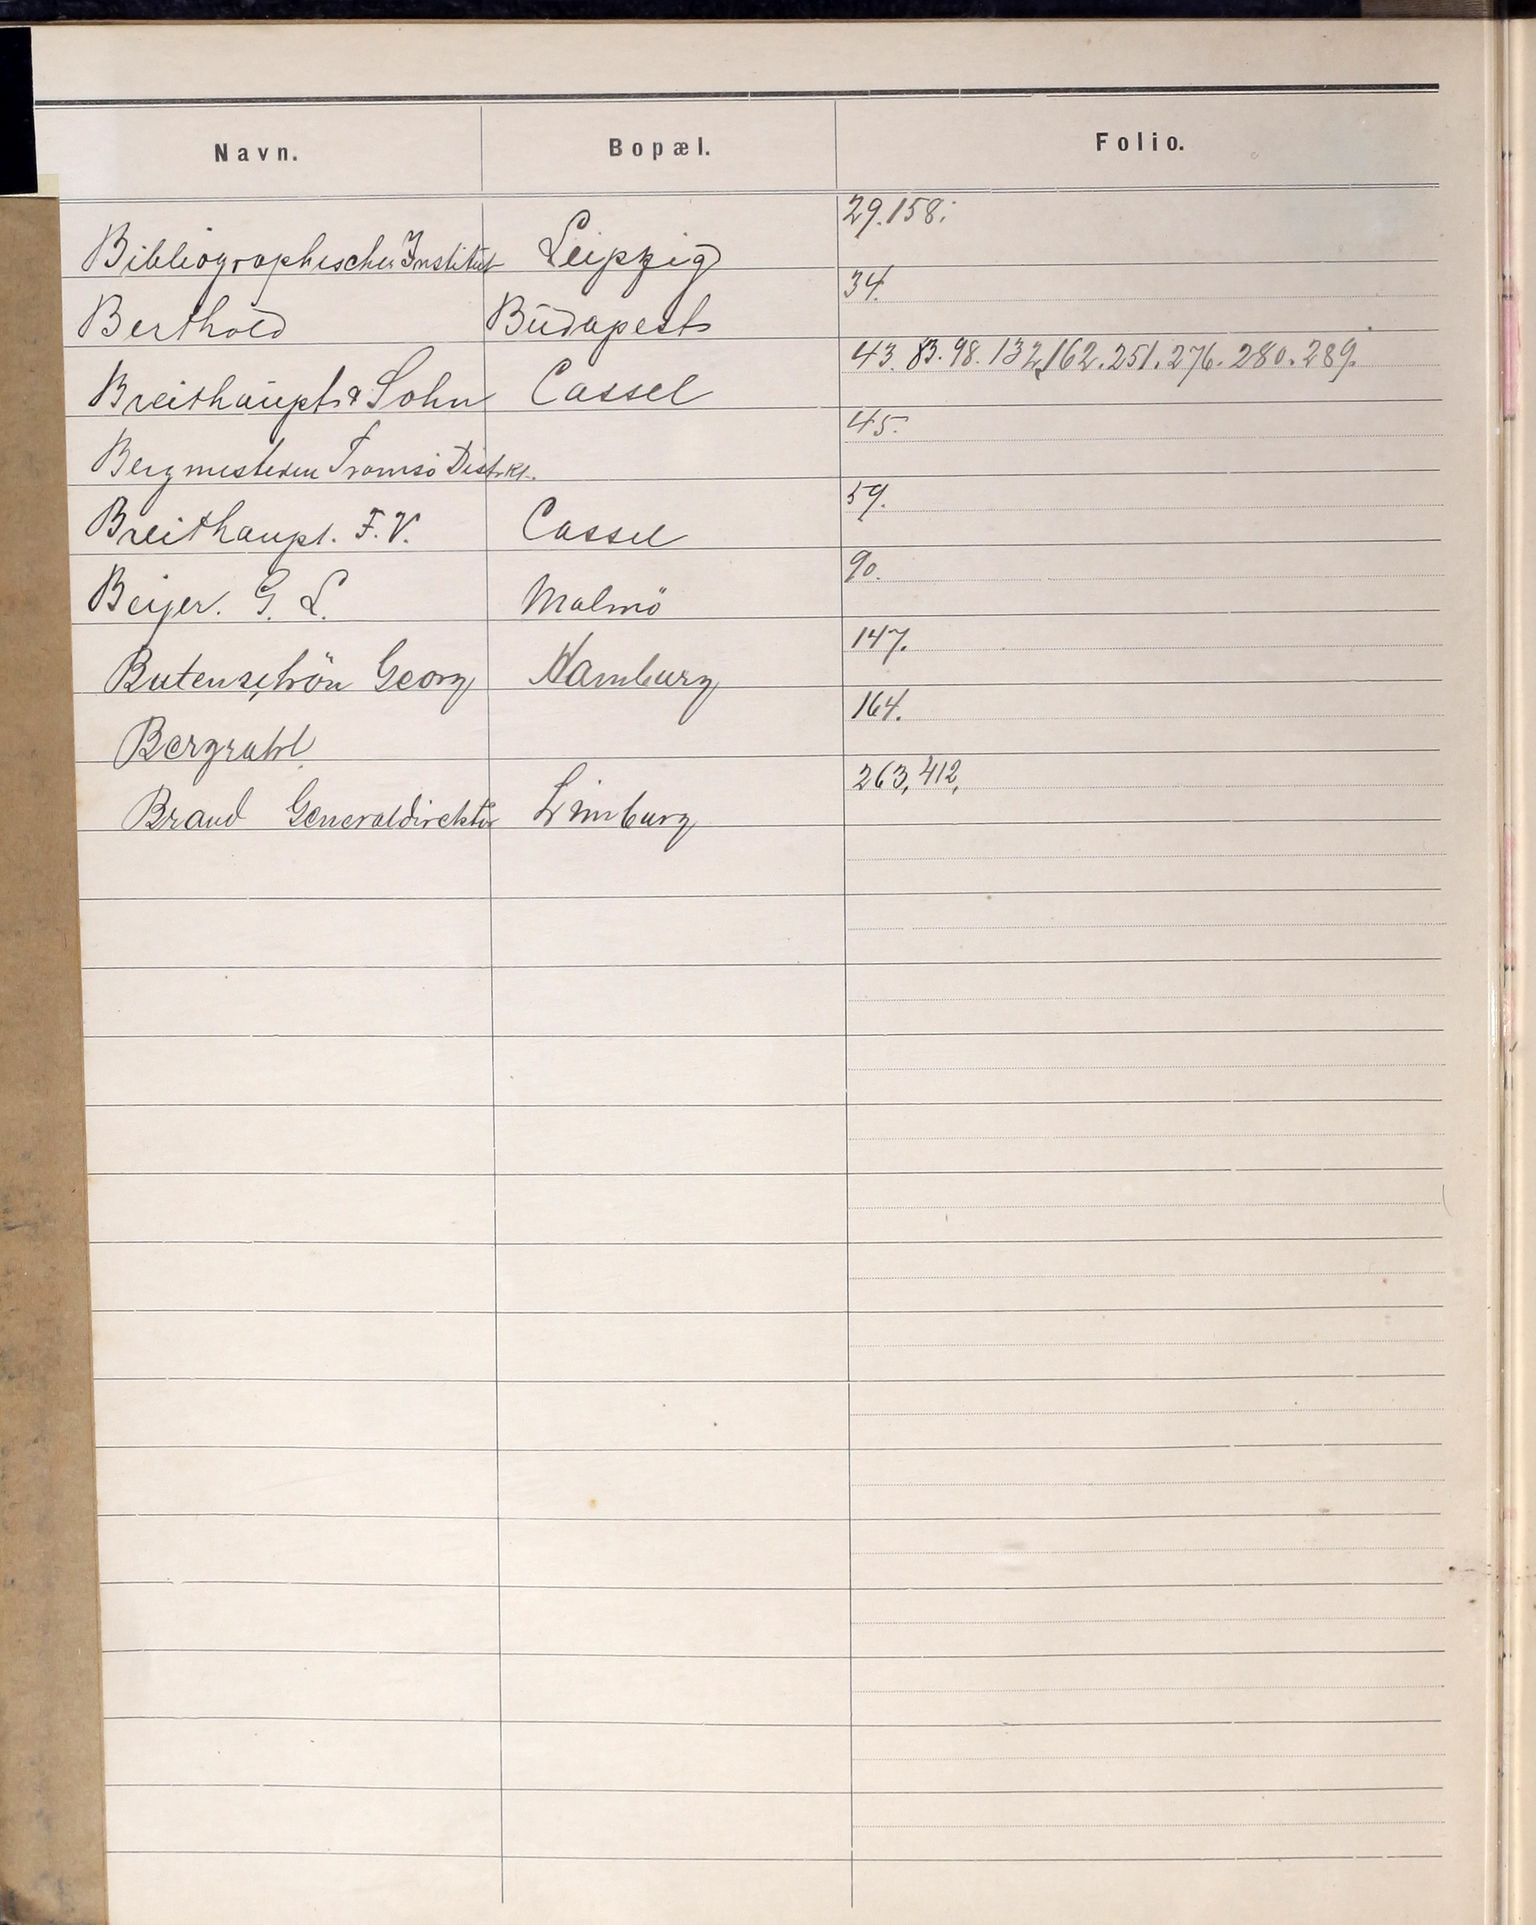 Navn. Bopæl. Folio.
Bibliographisches Institut Leipzig 29. 158.
Berthold Budapest 34.
Breithaupt & Sohn Cassel 43. 83. 98. 132, 162. 251. 276. 280. 289.
Bergmesteren Tromsö Distrkt. 45.
Breithaupt. F. V. Cassel 59.
Beijer. G. L. Malmö 90.
Butenschön Georg Hamburg 147.
164.
Brand Generaldirektör Limburg 263, 412,